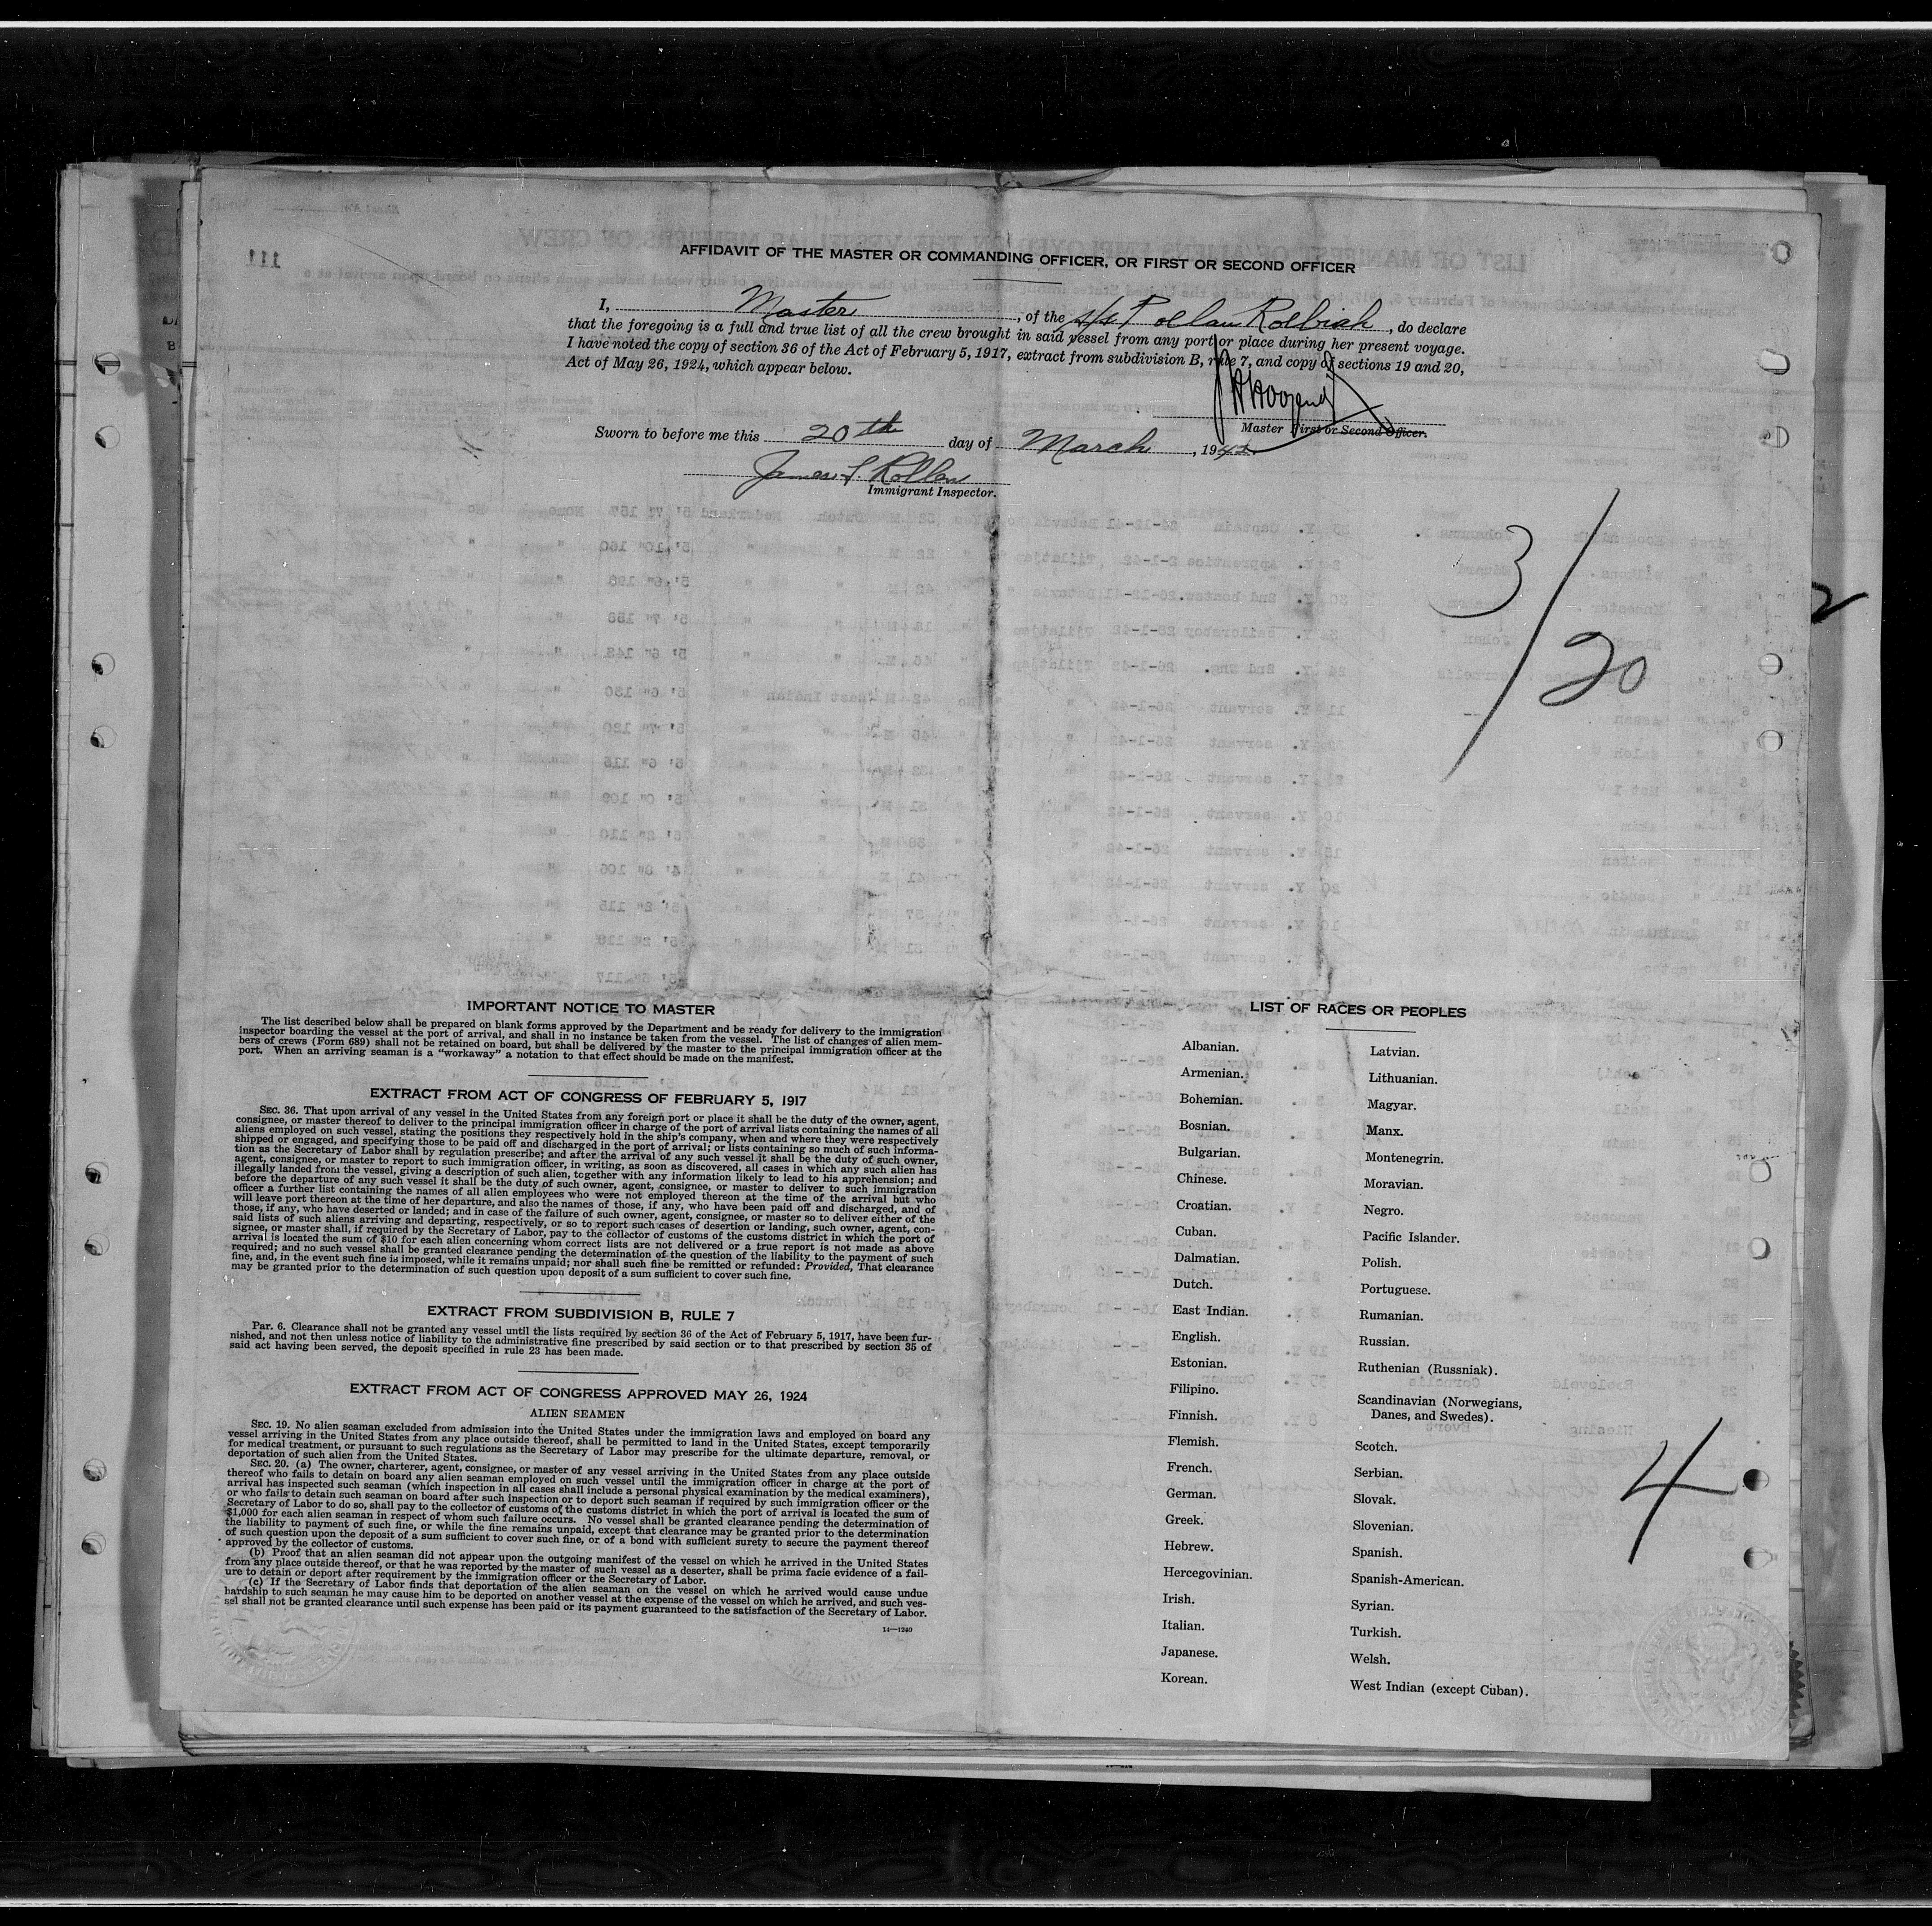 AFFIDAVIT OF THE MASTER OR COMMANDING OFFICER, OR FIRST OR SECOND OFFICER
I, Master, of the s/s Poelau Roebiah, do declare
that the foregoing is a full and true list of all the crew brought in said vessel from any port or place during her present voyage.
I have noted the copy of section 36 of the Act of February 5, 1917, extract from subdivision B, rule 7, and copy of sections 19 and 20,
Act of May 26, 1924, which appear below.
Master First or Second Officer.
Sworn to before me this 20th day of March, 1942.
James
Immigrant Inspector.
3/20
2
IMPORTANT NOTICE TO MASTER
The list described below shall be prepared on blank forms approved by the Department and be ready for delivery to the immigration
inspector boarding the vessel at the port of arrival, and shall in no instance be taken from the vessel. The list of changes of alien mem-
bers of crews (Form 689) shall not be retained on board, but shall be delivered by the master to the principal immigration officer at the
port. When an arriving seaman is a “workaway” a notation to that effect should be made on the manifest.
EXTRACT FROM ACT OF CONGRESS OF FEBRUARY 5, 1917
SEC. 36. That upon arrival of any vessel in the United States from any foreign port or place it shall be the duty of the owner, agent,
consignee, or master thereof to deliver to the principal immigration officer in charge of the port of arrival lists containing the names of all
aliens employed on such vessel, stating the positions they respectively hold in the ship's company, when and where they were respectively
shipped or engaged, and specifying those to be paid off and discharged in the port of arrival; or lists containing so much of such informa-
tion as the Secretary of Labor shall by regulation prescribe; and after the arrival of any such vessel it shall be the duty of such owner,
agent, consignee, or master to report to such immigration officer, in writing, as soon as discovered, all cases in which any such alien has
illegally landed from the vessel, giving a description of such alien, together with any information likely to lead to his apprehension; and
before the departure of any such vessel it shall be the duty of such owner, agent, consignee, or master to deliver to such immigration
officer a further list containing the names of all alien employees who were not employed thereon at the time of the arrival but who
will leave port thereon at the time of her departure, and also the names of those, if any, who have been paid off and discharged, and of
those, if any, who have deserted or landed; and in case of the failure of such owner, agent, consignee, or master so to deliver either of the
said lists of such aliens arriving and departing, respectively, or so to report such cases of desertion or landing, such owner, agent, con-
signee, or master shall, if required by the Secretary of Labor, pay to the collector of customs of the customs district in which the port of
arrival is located the sum of $10 for each alien concerning whom correct lists are not delivered or a true report is not made as above
required; and no such vessel shall be granted clearance pending the determination of the question of the liability to the payment of such
fine, and, in the event such fine is imposed, while it remains unpaid; nor shall such fine be remitted or refunded: Provided, That clearance
may be granted prior to the determination of such question upon deposit of a sum sufficient to cover such fine.
EXTRACT FROM SUBDIVISION B, RULE 7
Par. 6. Clearance shall not be granted any vessel until the lists required by section 36 of the Act of February 5, 1917, have been fur-
nished, and not then unless notice of liability to the administrative fine prescribed by said section or to that prescribed by section 35 of
said act having been served, the deposit specified in rule 23 has been made.
EXTRACT FROM ACT OF CONGRESS APPROVED MAY 26, 1924
ALIEN SEAMEN
SEC. 19. No alien seaman excluded from admission into the United States under the immigration laws and employed on board any
vessel arriving in the United States from any place outside thereof, shall be permitted to land in the United States, except temporarily
for medical treatment, or pursuant to such regulations as the Secretary of Labor may prescribe for the ultimate departure, removal, or
deportation of such alien from the United States.
SEC. 20. (a) The owner, charterer, agent, consignee, or master of any vessel arriving in the United States from any place outside
thereof who fails to detain on board any alien seaman employed on such vessel until the immigration officer in charge at the port of
arrival has inspected such seaman (which inspection in all cases shall include a personal physical examination by the medical examiners),
or who fails to detain such seaman on board after such inspection or to deport such seaman if required by such immigration officer or the
Secretary of Labor to do so, shall pay to the collector of customs of the customs district in which the port of arrival is located the sum of
$1,000 for each alien seaman in respect of whom such failure occurs. No vessel shall be granted clearance pending the determination of
the liability to payment of such fine, or while the fine remains unpaid, except that clearance may be granted prior to the determination
of such question upon the deposit of a sum sufficient to cover such fine, or of a bond with sufficient surety to secure the payment thereof
approved by the collector of customs.
(b) Proof that an alien seaman did not appear upon the outgoing manifest of the vessel on which he arrived in the United States
from any place outside thereof, or that he was reported by the master of such vessel as a deserter, shall be prima facie evidence of a fail-
ure to detain or deport after requirement by the immigration officer or the Secretary of Labor.
(c) If the Secretary of Labor finds that deportation of the alien seaman on the vessel on which he arrived would cause undue
hardship to such seaman he may cause him to be deported on another vessel at the expense of the vessel on which he arrived, and such ves-
sel shall not be granted clearance until such expense has been paid or its payment guaranteed to the satisfaction of the Secretary of Labor.
14—1240
LIST OF RACES OR PEOPLES
Albanian.
Armenian.
Bohemian.
Bosnian.
Bulgarian.
Chinese.
Croatian.
Cuban.
Dalmatian.
Dutch.
East Indian.
English.
Estonian.
Filipino.
Finnish.
Flemish.
French.
German.
Greek.
Hebrew.
Hercegovinian.
Irish.
Italian.
Japanese.
Korean.
Latvian.
Lithuanian.
Magyar.
Manx.
Montenegrin.
Moravian.
Negro.
Pacific Islander.
Polish.
Portuguese.
Rumanian.
Russian.
Ruthenian (Russniak).
Scandinavian (Norwegians,
Danes, and Swedes).
Scotch.
Serbian.
Slovak.
Slovenian.
Spanish.
Spanish-American.
Syrian.
Turkish.
Welsh.
West Indian (except Cuban).
4